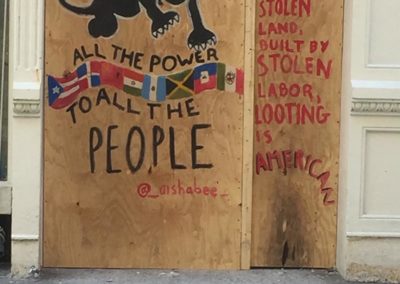 ALL THE POWER
TO ALL THE
PEOPLE
@_aishabee_
STOLEN
LAND,
BUILT BY
STOLEN
LABOR,
LOOTING
IS
AMERICAN